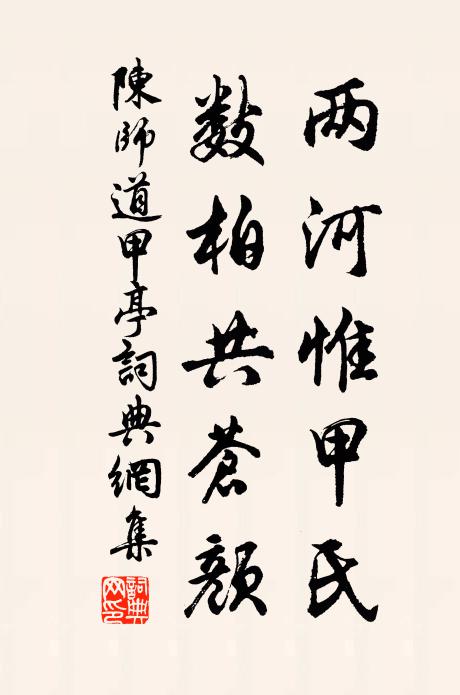 两河惟甲氏
数柏共苍颜
陳師道甲亭詞典網集
詞典网印